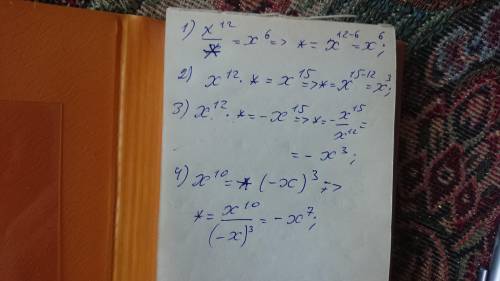 1) x¹²/* = x⁶ => * = x¹²⁻⁶ = x⁶;
2) x¹² · * = x¹⁵ => * = x¹⁵⁻¹² = x³;
3) x¹² · * = -x¹⁵ => * = -x¹⁵/x¹² =
= -x³;
4) x¹⁰ = * (-x)³ =>
* = x¹⁰/(-x)³ = -x⁷;